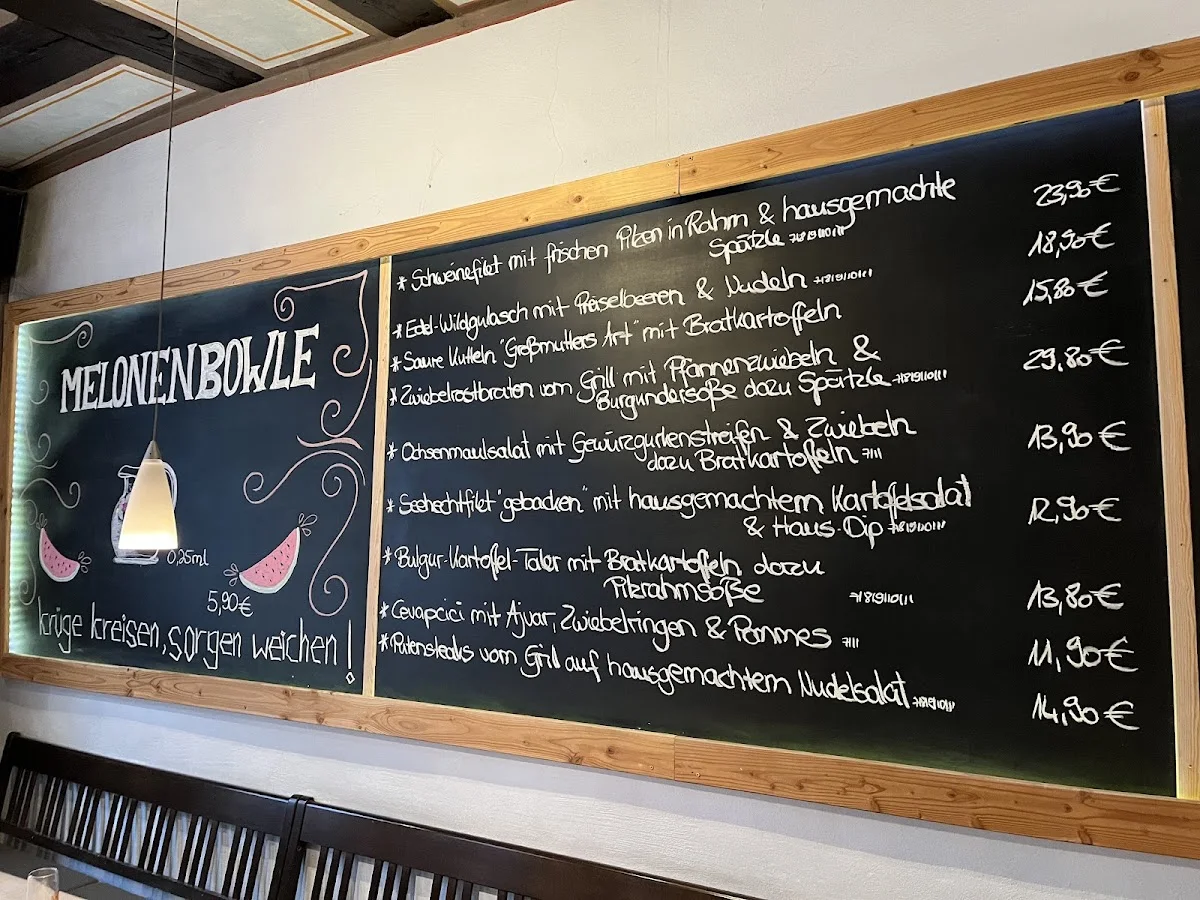 MELONENBOWLE
0,25ml
5,90€
krüge kreisen, sorgen weichen!
* Schweinefilet mit frischen Pilzen in Rahm & hausgemachte 23,90€
Spätzle
* Edel-Wildgulasch mit Preiselbeeren & Nudeln 18,90€
* Saure Kutteln "Großmutters Art" mit Bratkartoffeln 15,80€
* Zwiebelrostbraten vom Grill mit Pfannenzwiebeln & 29,80€
Burgundersoße dazu Spätzle
* Ochsenmaulsalat mit Gewürzgurkenstreifen & Zwiebeln 13,90€
dazu Bratkartoffeln
* Seehechtfilet "gebacken" mit hausgemachtem Kartoffelsalat 12,90€
& Haus-Dip
* Bulgur-Kartoffel-Taler mit Bratkartoffeln dazu
Pilzrahmsoße 13,80€
* Cevapcici mit Ajvar, Zwiebelringen & Pommes 11,90€
* Putensteaks vom Grill auf hausgemachtem Nudelsalat 14,90€